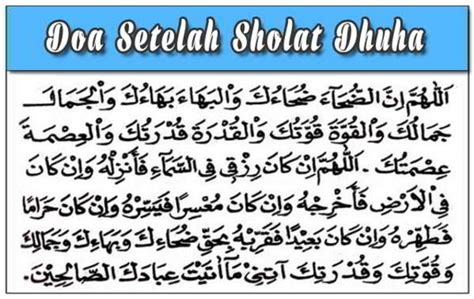 Doa Setelah Sholat Dhuha
اَللّٰهُمَّ اِنَّ الضُّحَآءَ ضُحَاءُكَ وَالْبَهَاءَ بَهَاءُكَ وَالْجَمَالَ
جَمَالُكَ وَالْقُوَّةَ قُوَّتُكَ وَالْقُدْرَةَ قُدْرَتُكَ وَالْعِصْمَةَ
عِصْمَتُكَ . اَللّٰهُمَّ اِنْ كَانَ رِزْقِي فِي السَّمَآءِ فَأَنْزِلْهُ وَاِنْ كَانَ
فِي الْاَرْضِ فَأَخْرِجْهُ وَاِنْ كَانَ مُعْسِرًا فَيَسِّرْهُ وَاِنْ كَانَ حَرَامًا
فَطَهِّرْهُ وَاِنْ كَانَ بَعِيْدًا فَقَرِّبْهُ بِحَقِّ ضُحَاءِكَ وَبَهَاءِكَ وَجَمَالِكَ
وَقُوَّتِكَ وَقُدْرَتِكَ آتِنِيْ مَآ اَتَيْتَ عِبَادَكَ الصَّالِحِيْنَ .